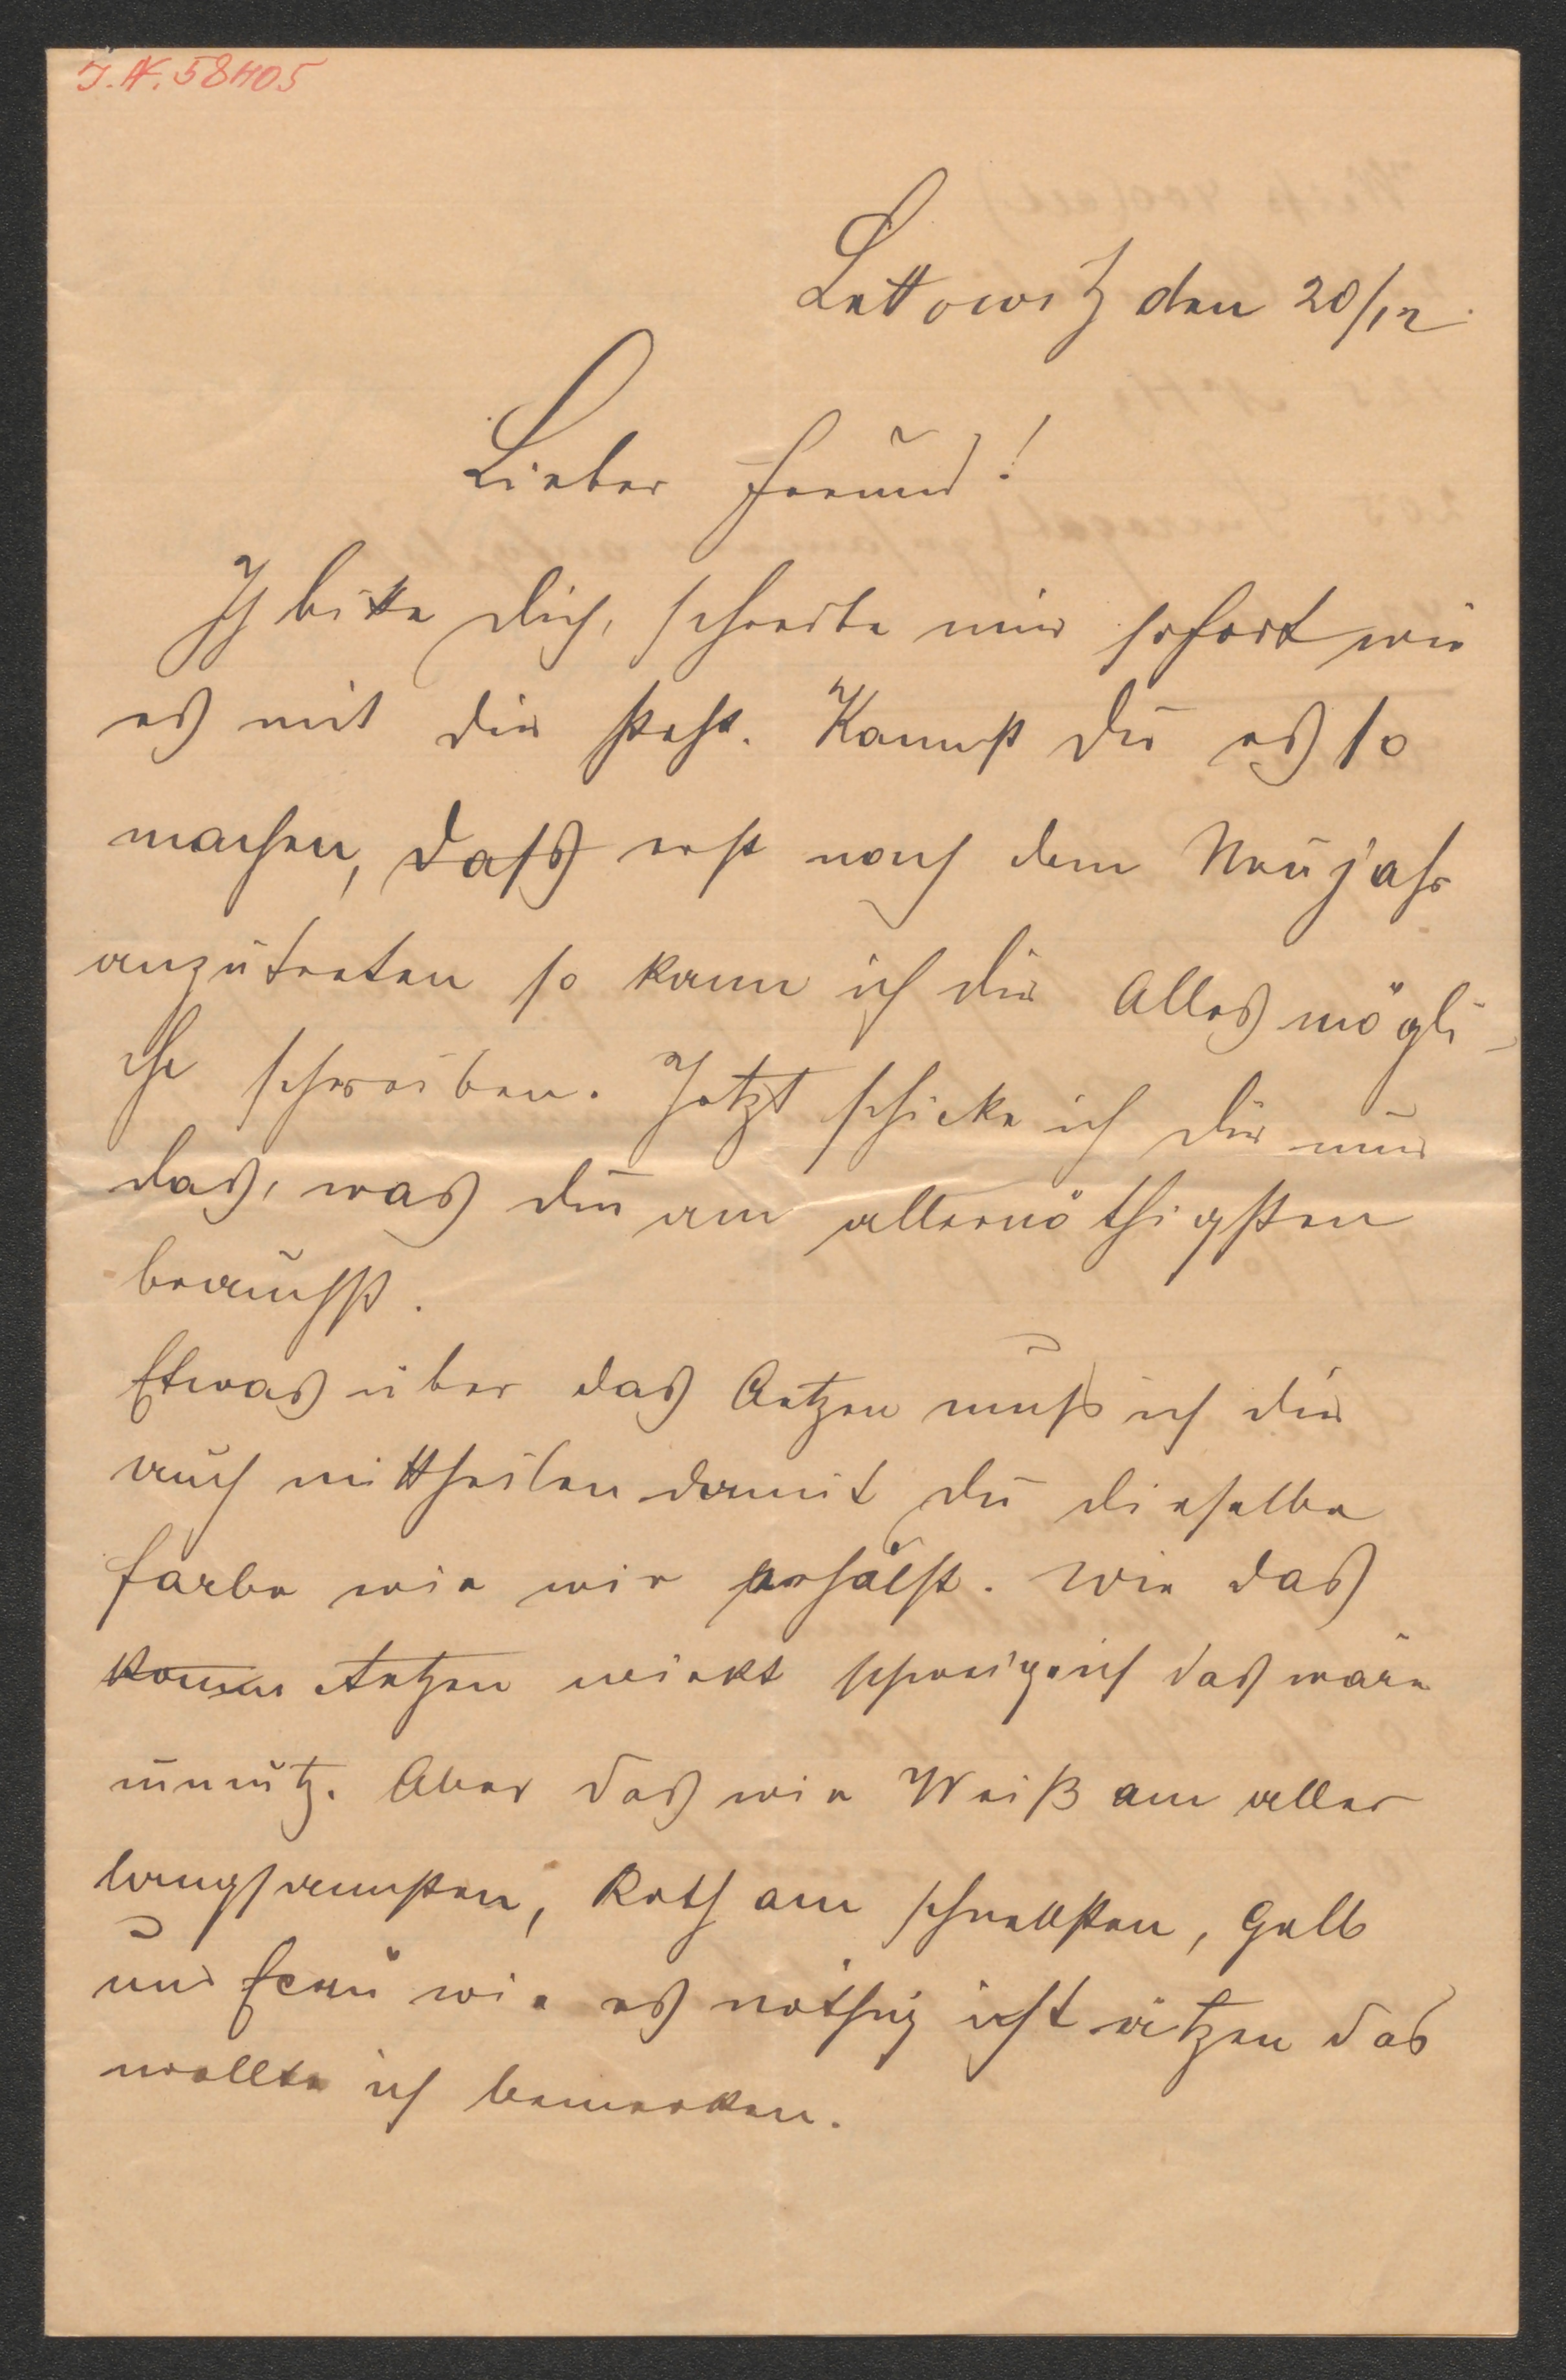 I. N. 58405
Lettowitz den 20/12.
Lieber Freund!
Ich bitte dich, schreibe mir sofort wie
es mit dir steht. Kannst du es so
machen, dass erst nach dem Neujahr
anzutreten so kann ich dir Alles mögli-
che schreiben. Jetzt schicke ich dir nur
das, was du am allernöthigsten
brauchst.
Etwas über das Aetzen muss ich dir
auch mittheilen damit du dieselbe
Farbe wie wir erhälst. Wie das
Aetzen wirkt schweige ich das wäre
unnütz. Aber das wie Weiß am aller
langsamsten, Roth am schnellsten, Gelb
und Ecru wie es nöthig ist ätzen das
wollte ich bemerken.